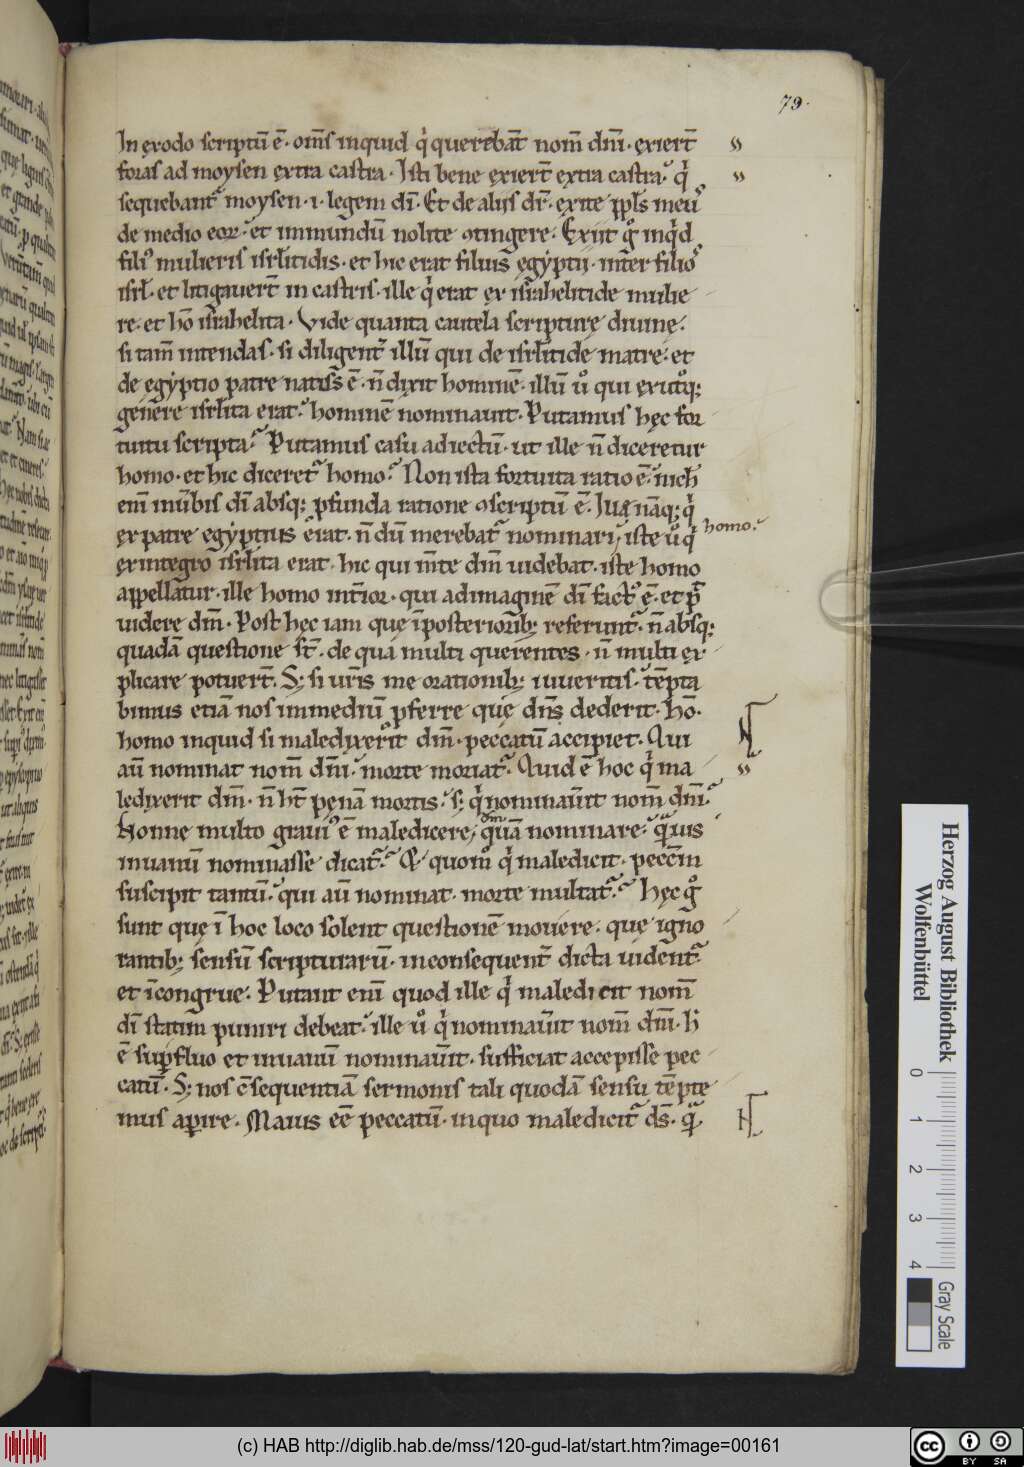 79.
In exodo scriptū ē. om̄s inquid q̇ querebāt nom̄ dn̄i. exiert̄
foras ad moysen extra castra. Isti bene exiert̄ extra castra. q̇
sequebant᷑ moysen .i. legem dī. Et de aliis dr̄. exite ppl̄s meus
de medio eoꝝ. et immundū nolite ꝯtingere. Exiit gͦ inqͥd
filiꝰ mulieris isrl̄itidis. et hic erat filius egẏptij. int̄ filios
isrl̄. et litigavert̄ in castris. ille q̇ erat ex israhelitide mulie
re. et hō israhelita. Vide quanta cautela scripture diuine.
si tam̄ intendas. si diligent̄ illū qui de isrl̄itide matre. et
de egẏptio patre natus ē. n̄ dixit hominē. illū ů qui ex utoq;
genere isrl̄ita erat. hominē nominauit. Putamus hęc for
tuitu scripta. Putamus casu adiectū. ut ille n̄ diceretur
homo. et hic diceret᷑ homo. Non ista fortuita ratio ē. nich̄
eni̅ in ūbis dī absq; ꝓfunda ratione ꝯscriptū ē. Ille nāq; q̇
ex patre egẏptius erat. n̄ dū merebat᷑ nominari, iste ů q̇ homo.
ex integro isrl̄ita erat. hic qui m̄te dm̄ uidebat. iste homo
appellatur. ille homo int̄ior. qui ad imaginē dī factꝰ ē. et pͣ
uidere dm̄. Post hęc iam que ī posteriorib; referunt᷑. n̄ absq;
quadā questione st̄. de qua multi querentes. n̄ multi ex
plicare potuert̄. S; si ur̄is me orationib; iuueritis. tēpta
bimus etiā nos in mediū ꝓferre que dn̄s dederit. Hō.
homo inquid si maledixerit dm̄. peccatū accipiet. Qui
aū nominat nom̄ dn̄i. morte moriat᷑. Quid ē hoc q̇ ma
ledixerit dm̄. n̄ ht̄ penā mortis. s; q̇ nominauit nom̄ dn̄i.
Nonne multo grauiꝰ ē maledicere, dm̄ quā nominare. quis
in uanū nominasse dicat᷑. Et quom̊ q̇ maledicit. peccm̄
suscipit tantū. qui aū nominat. morte multat᷑. Hęc gͦ
sunt que ī hoc loco solent questionē mouere. que igno
rantib; sensū scripturarū. inconsequent̄ dicta uident᷑
et īcongrue. Putant eni̅ quod ille q̇ maledicit nom̄
dī statim puniri debeat. ille ů q̇ nominauit nom̄ dm̄. h̄
ē suꝑfluo et in uanū nominauit. sufficiat accepisse pec
catū. S; nos cōsequentiā sermonis tali quodā sensu tēpte
mus aperire. Maius eē peccatū. in quo maledicit᷑ ds̄. q̄
Herzog August Bibliothek
Wolfenbüttel
0 1 2 3 4
Gray Scale
(c) HAB http://diglib.hab.de/mss/120-gud-lat/start.htm?image=00161
cc BY SA